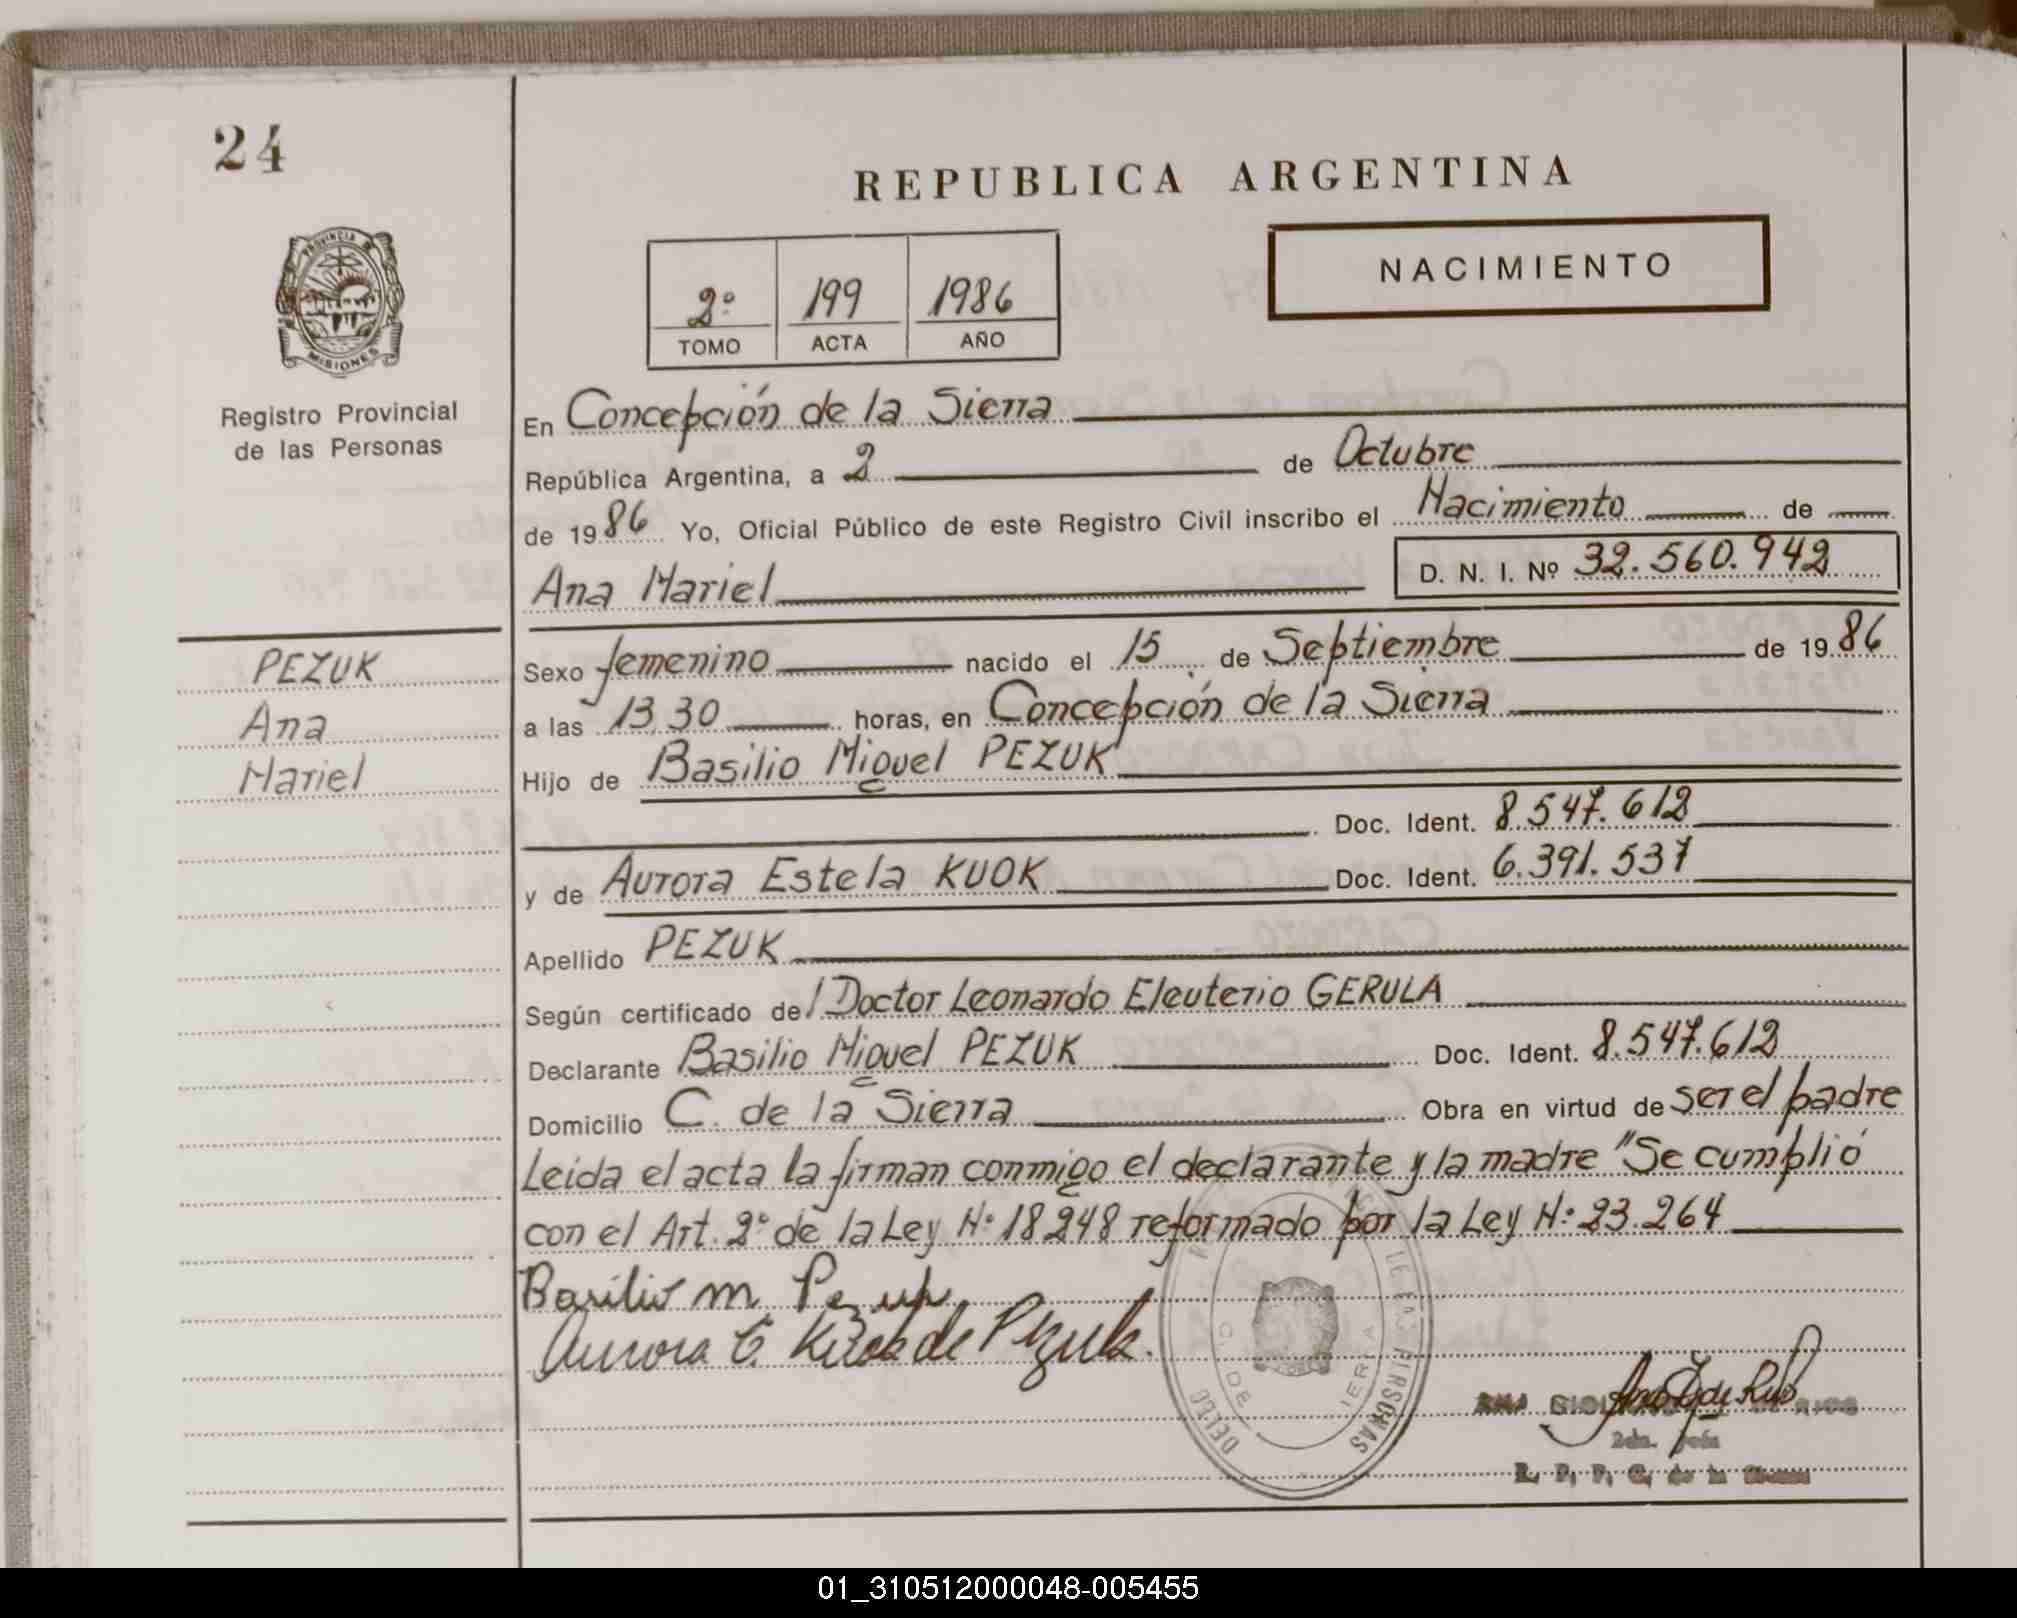 24
REPUBLICA ARGENTINA
NACIMIENTO
2º 199 1986
TOMO ACTA AÑO
PROVINCIA DE
MISIONES
Registro Provincial
de las Personas
En Concepción de la Sierra
República Argentina, a 2 de Octubre
de 1986 Yo, Oficial Público de este Registro Civil inscribo el Nacimiento de
Ana Mariel D. N. I. Nº 32.560.942
PEZUK
Ana
Mariel
Sexo femenino nacido el 15 de Septiembre de 1986
a las 13,30 horas, en Concepción de la Sierra
Hijo de Basilio Miguel PEZUK
Doc. Ident. 8.547.612
y de Aurora Estela KUOK Doc. Ident. 6.391.537
Apellido PEZUK
Según certificado del Doctor Leonardo Eleuterio GERULA
Declarante Basilio Miguel PEZUK Doc. Ident. 8.547.612
Domicilio C. de la Sierra Obra en virtud de ser el padre
Leída el acta la firman conmigo el declarante y la madre "Se cumplió
con el Art. 2º de la Ley Nº 18248 reformado por la Ley Nº 23.264
Basilio M. Pezuk
Aurora E. Kuok de Pezuk.
DE LAS PERSONAS
C. DE
R. P. P. C. de la Sierra
01_310512000048-005455